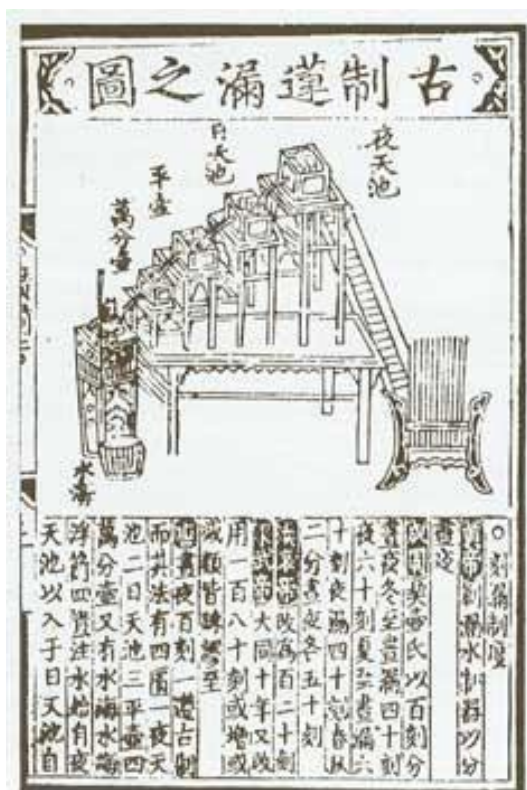 古制蓮漏之圖
夜天池
日天池
平壺
萬分壺
水海
○刻漏制度
黃帝創漏水制器以分
晝夜
成周挈壺氏以百刻分
晝夜冬至晝漏四十刻
夜六十刻夏至晝漏六
十刻夜漏四十刻春秋
二分晝夜各五十刻
改為百二十刻
大同十年又改
用一百八十刻或增或
減類皆疎謬至
唐晝夜百刻一遵古制
而其法有四匱一夜天
池二日天池三平壺四
萬分壺又有水海水海
浮箭四匱注水始自夜
天池以入于日天池自